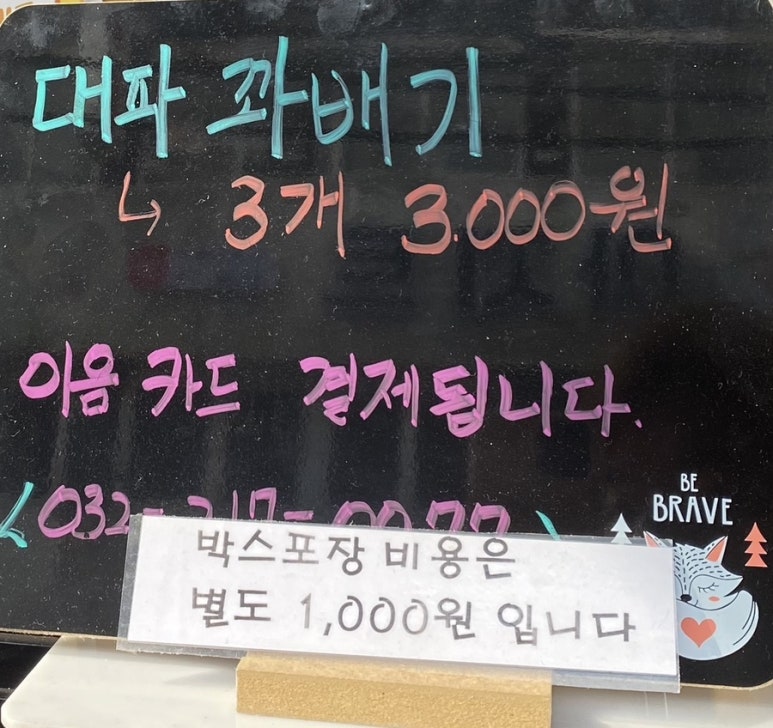 대파 꽈배기
↳ 3개 3.000원
이음 카드 결제됩니다.
BE
BRAVE
박스포장 비용은
별도 1,000원 입니다